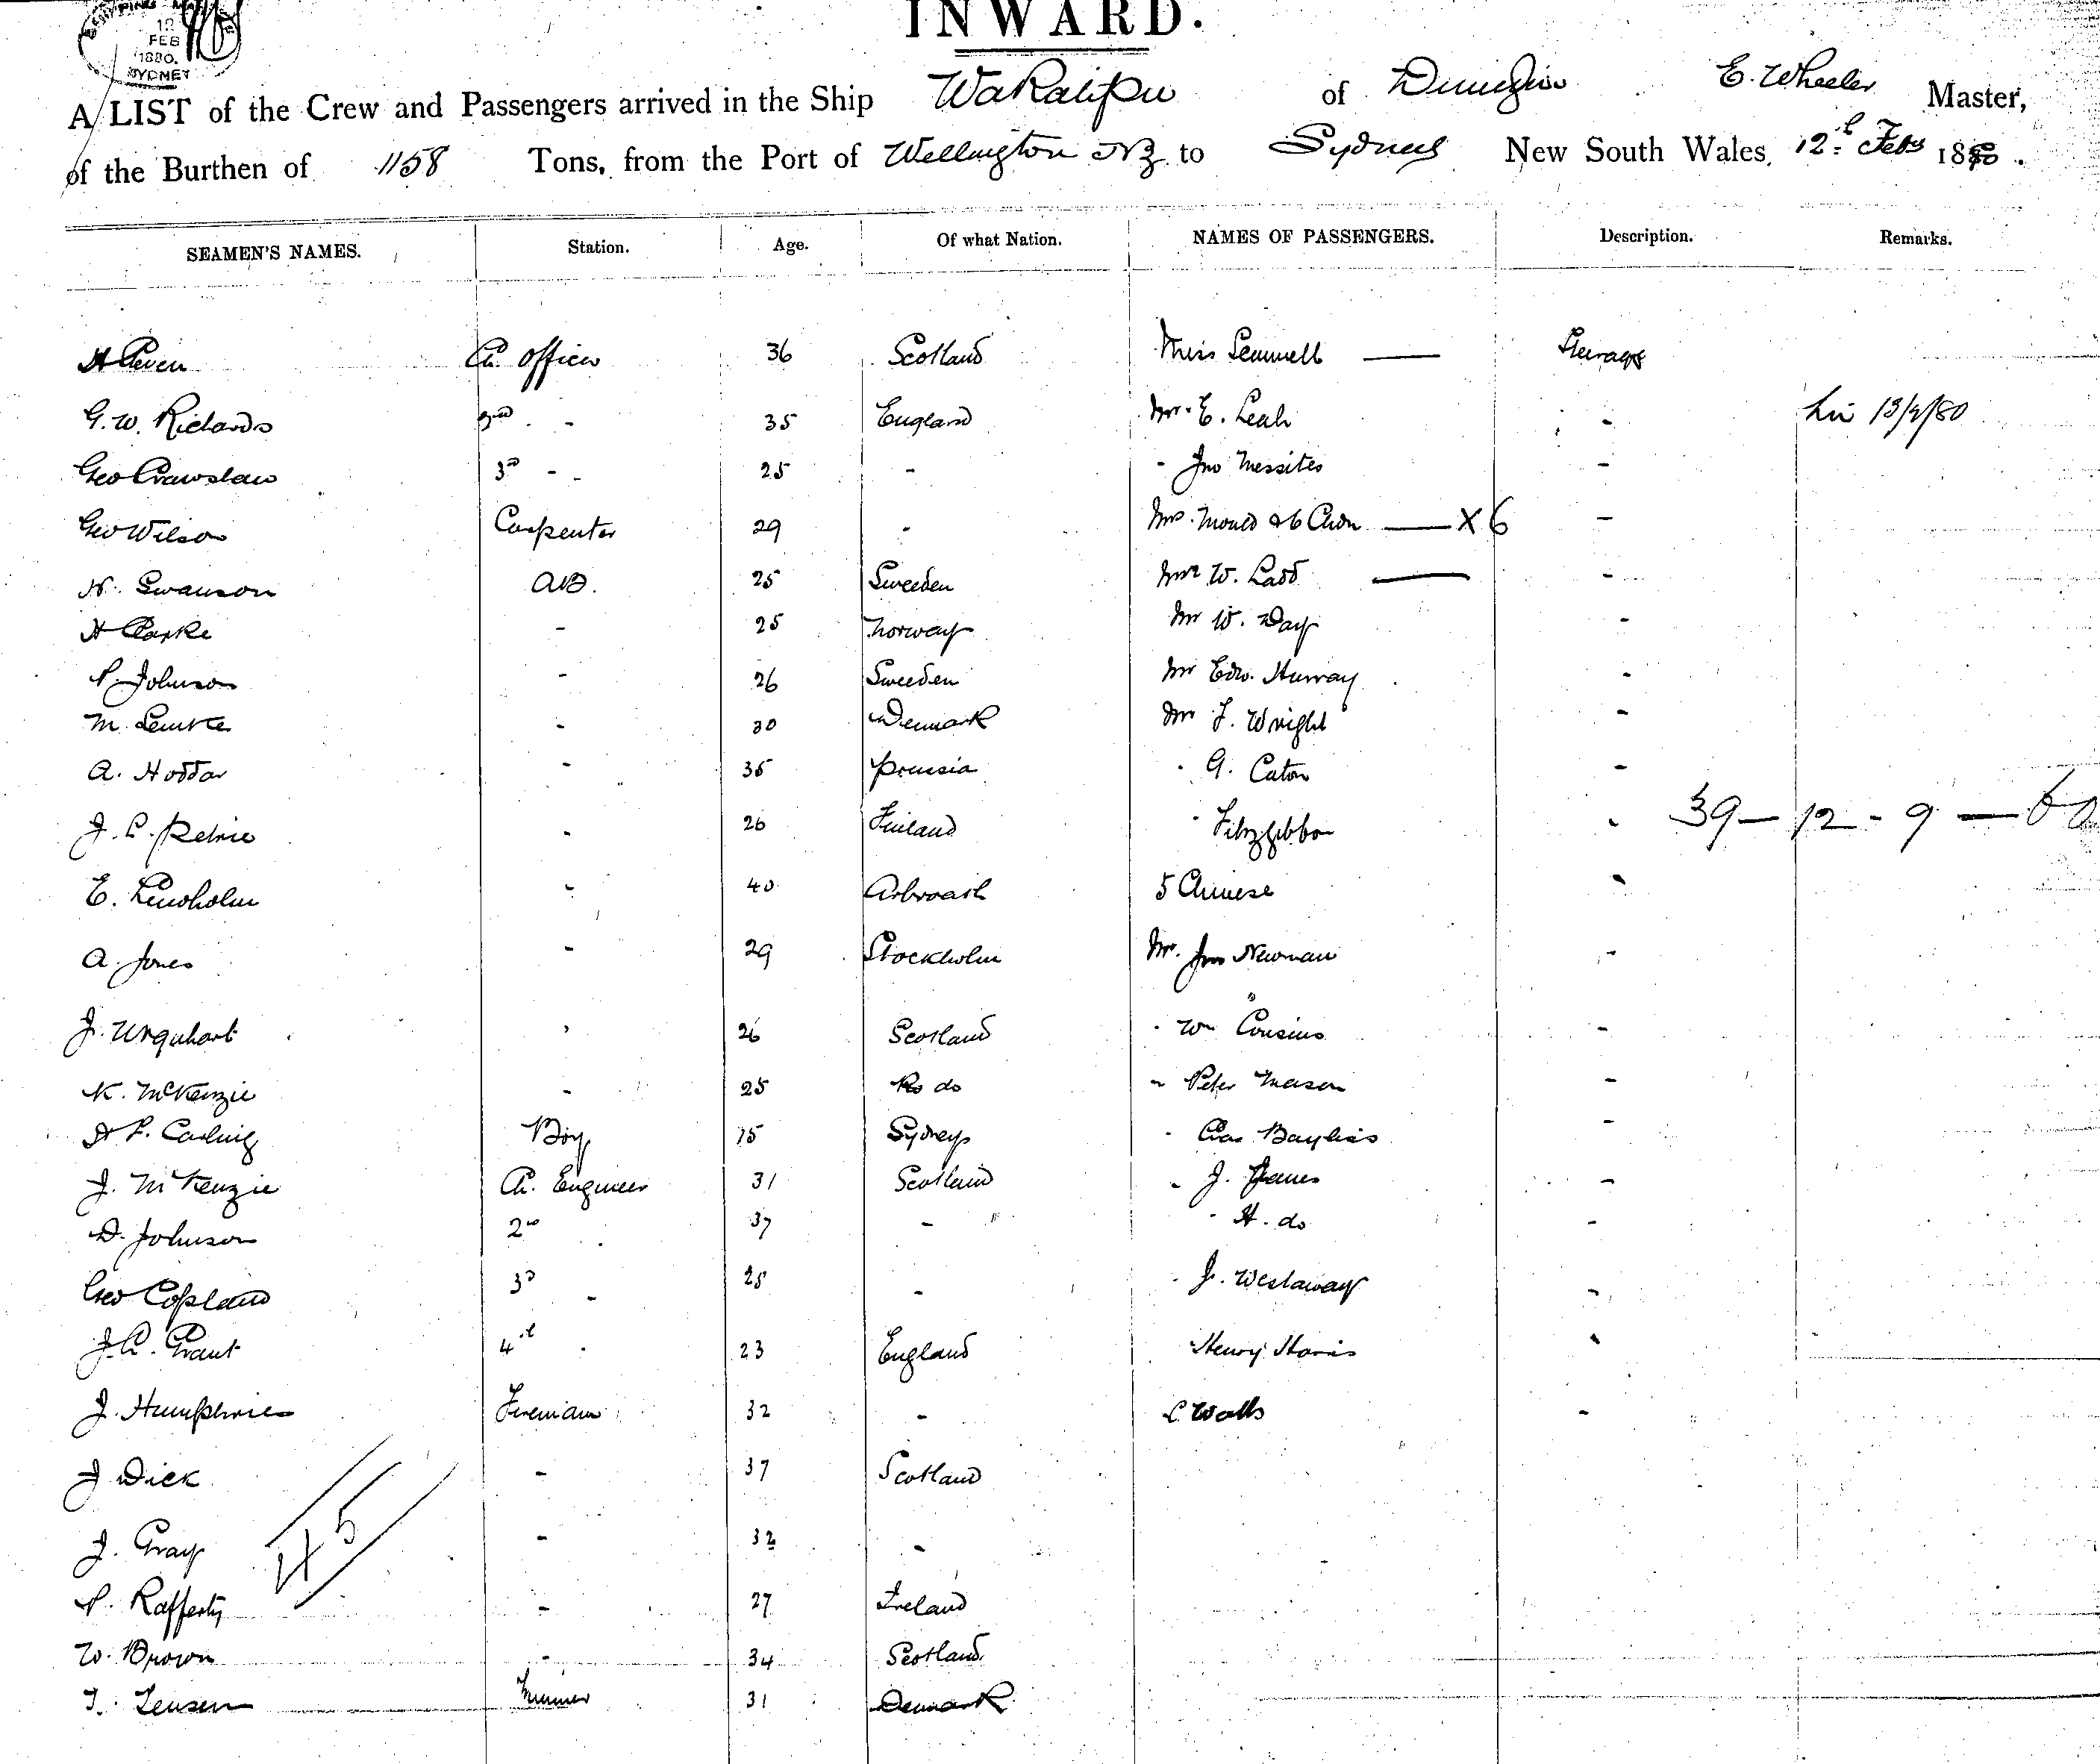 SHIPPING MA
12
FEB
1880.
SYDNEY
INWARD.
A LIST of the Crew and Passengers arrived in the Ship Wakatipu of Dunedin E. Wheeler Master,
of the Burthen of 1158 Tons, from the Port of Wellington NZ to Sydney New South Wales, 12th Feby 1880.
SEAMEN'S NAMES. Station. Age. Of what Nation. NAMES OF PASSENGERS. Description. Remarks.
Ch. Officer 36 Scotland Miss Steerage
G. W. Richards 2nd - 35 England Mr. E. Leah - 13/2/80
Geo Crawshaw 3rd - - 25 - - Jno Messites -
Geo Wilson Carpenter 29 - Mrs. Mould & 6 Chdn — X 6 -
N. Swanson AB. 25 Sweeden Mrs W. Ladd — -
H Clarke - 25 Norway Mr W. Day -
P. Johnson - 26 Sweeden Mr Edw. Murray -
M. Lemke - 30 Denmark Mr F. Wright -
A. Hoddar - 35 Prussia - G. Caton -
J. P. - 26 Finland - Fitzgibbon - 39 — 12 - 9 — 60
E. Lindholm - 40 Arbroath 5 Chinese -
A. Jones - 29 Stockholm Mr. Jno Newman -
J. Urquhart - 26 Scotland - Wm Cousins -
K. McKenzie - 25 do - Peter Mason -
H P. Boy 15 Sydney - Chas Bayliss -
J. McKenzie Ch. Engineer 31 Scotland - J. James -
D. Johnson 2nd - 37 - - H. do -
Geo Copland 3d - 25 - - J. Westaway -
J. C. Grant 4th - 23 England Henry Harris -
J. Humphries Fireman 32 - C. Walls -
J Dick - 37 Scotland
J. Gray - 32 -
45
P. Rafferty - 27 Ireland
W. Brown - 34 Scotland
T. Jensen Trimmer 31 Denmark